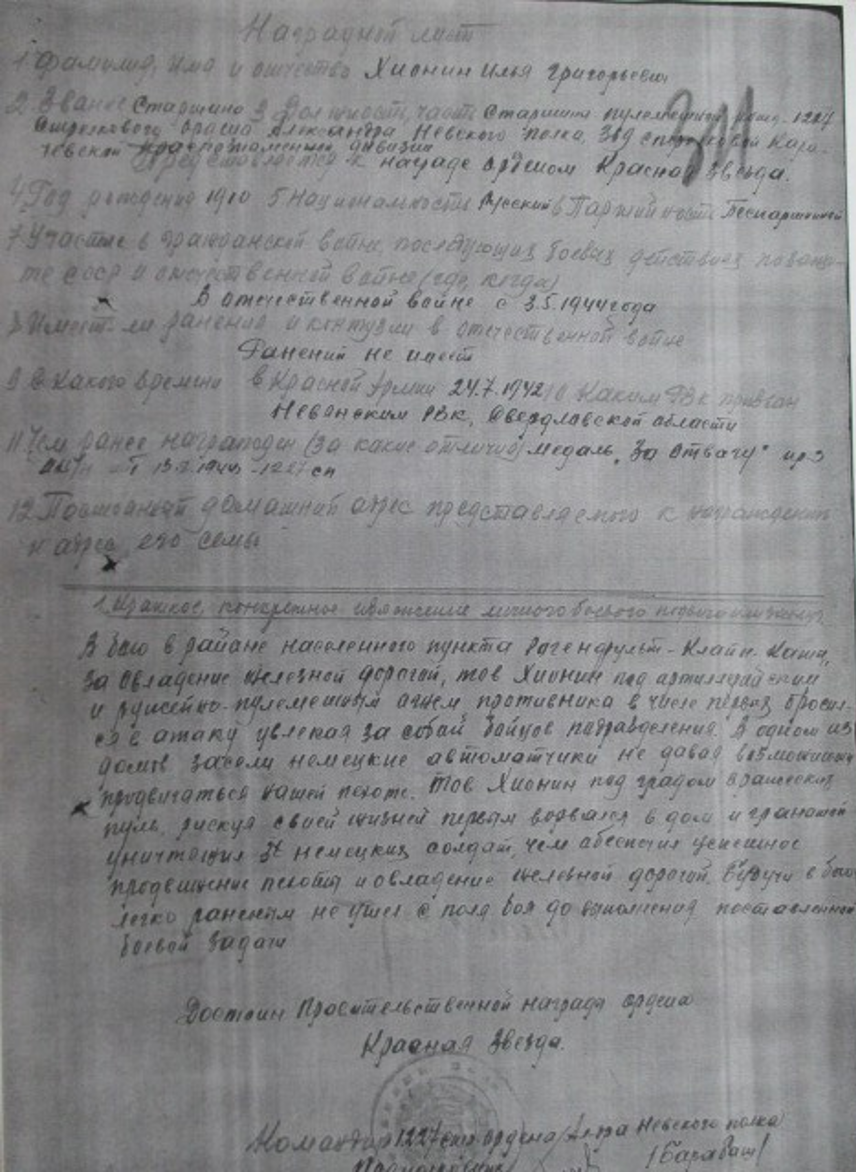 Наградной лист
1 Фамилия, имя и отчество Хионин Илья Григорьевич
2. Звание Старшина 3 Должность, часть Старшина пулеметной роты 1227
Стрелкового ордена Александра Невского полка, 369 стрелковой Кара-
чевской краснознаменной дивизии
Представляется к награде орденом Красная Звезда.
4 Год рождения 1910 5 Национальность Русский 6 Партийность Беспартийный
7 Участие в гражданской войне, последующих боевых действиях по защи-
те СССР и отечественной войне (где, когда)
В отечественной войне с 3.5.1944 года
8 Имеет ли ранения и контузии в отечественной войне
Ранений не имеет
9 С какого времени в Красной Армии 24.7.1942 10 Каким РВК призван
Невянским РВК, Свердловской области
11 Чем ранее награжден (за какие отличия) медаль „За Отвагу"
1944 - 1227 сп
12 Постоянный домашний адрес представляемого к награждению
и адрес его семьи
1. Краткое, конкретное изложение личного боевого подвига или заслуг
В бою в районе населенного пункта Клайн Каша,
за овладение железной дорогой, тов Хионин под артиллерийским
и ружейно-пулеметным огнем противника в числе первых бросил-
ся в атаку увлекая за собой бойцов подразделения. В одном из
домов засели немецкие автоматчики не давая возможности
продвигаться нашей пехоте. Тов Хионин под градом вражеских
пуль, рискуя своей жизней первым ворвался в дом и гранатой
уничтожил немецких солдат, чем обеспечил успешное
продвижение пехоты и овладение железной дорогой. Будучи в бою
легко раненым не ушел с поля боя до выполнения поставленной
боевой задачи
Достоин Правительственной награды ордена
Красная Звезда.
Командир 1227 стр. ордена Ал-ра Невского полка
Подполковник /Барабаш/